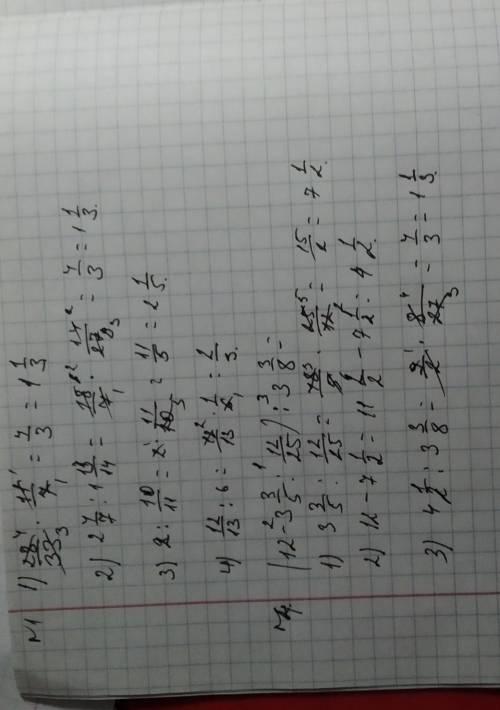 №1 1) 28/33 · 11/7 = 4/3 = 1 1/3
2) 2 4/7 : 1 13/14 = 18/7 · 14/27 = 4/3 = 1 1/3.
3) 2 : 10/11 = 2 · 11/10 = 11/5 = 2 1/5.
4) 12/13 : 6 = 12/13 · 1/6 = 2/13.
(12 - 3 3/5 : 12/25) : 3 3/8 =
1) 3 3/5 : 12/25 = 18/5 · 25/12 = 15/2 = 7 1/2
2) 12 - 7 1/2 = 11 2/2 - 7 1/2 = 4 1/2.
3) 4 1/2 : 3 3/8 = 9/2 · 8/27 = 4/3 = 1 1/3.